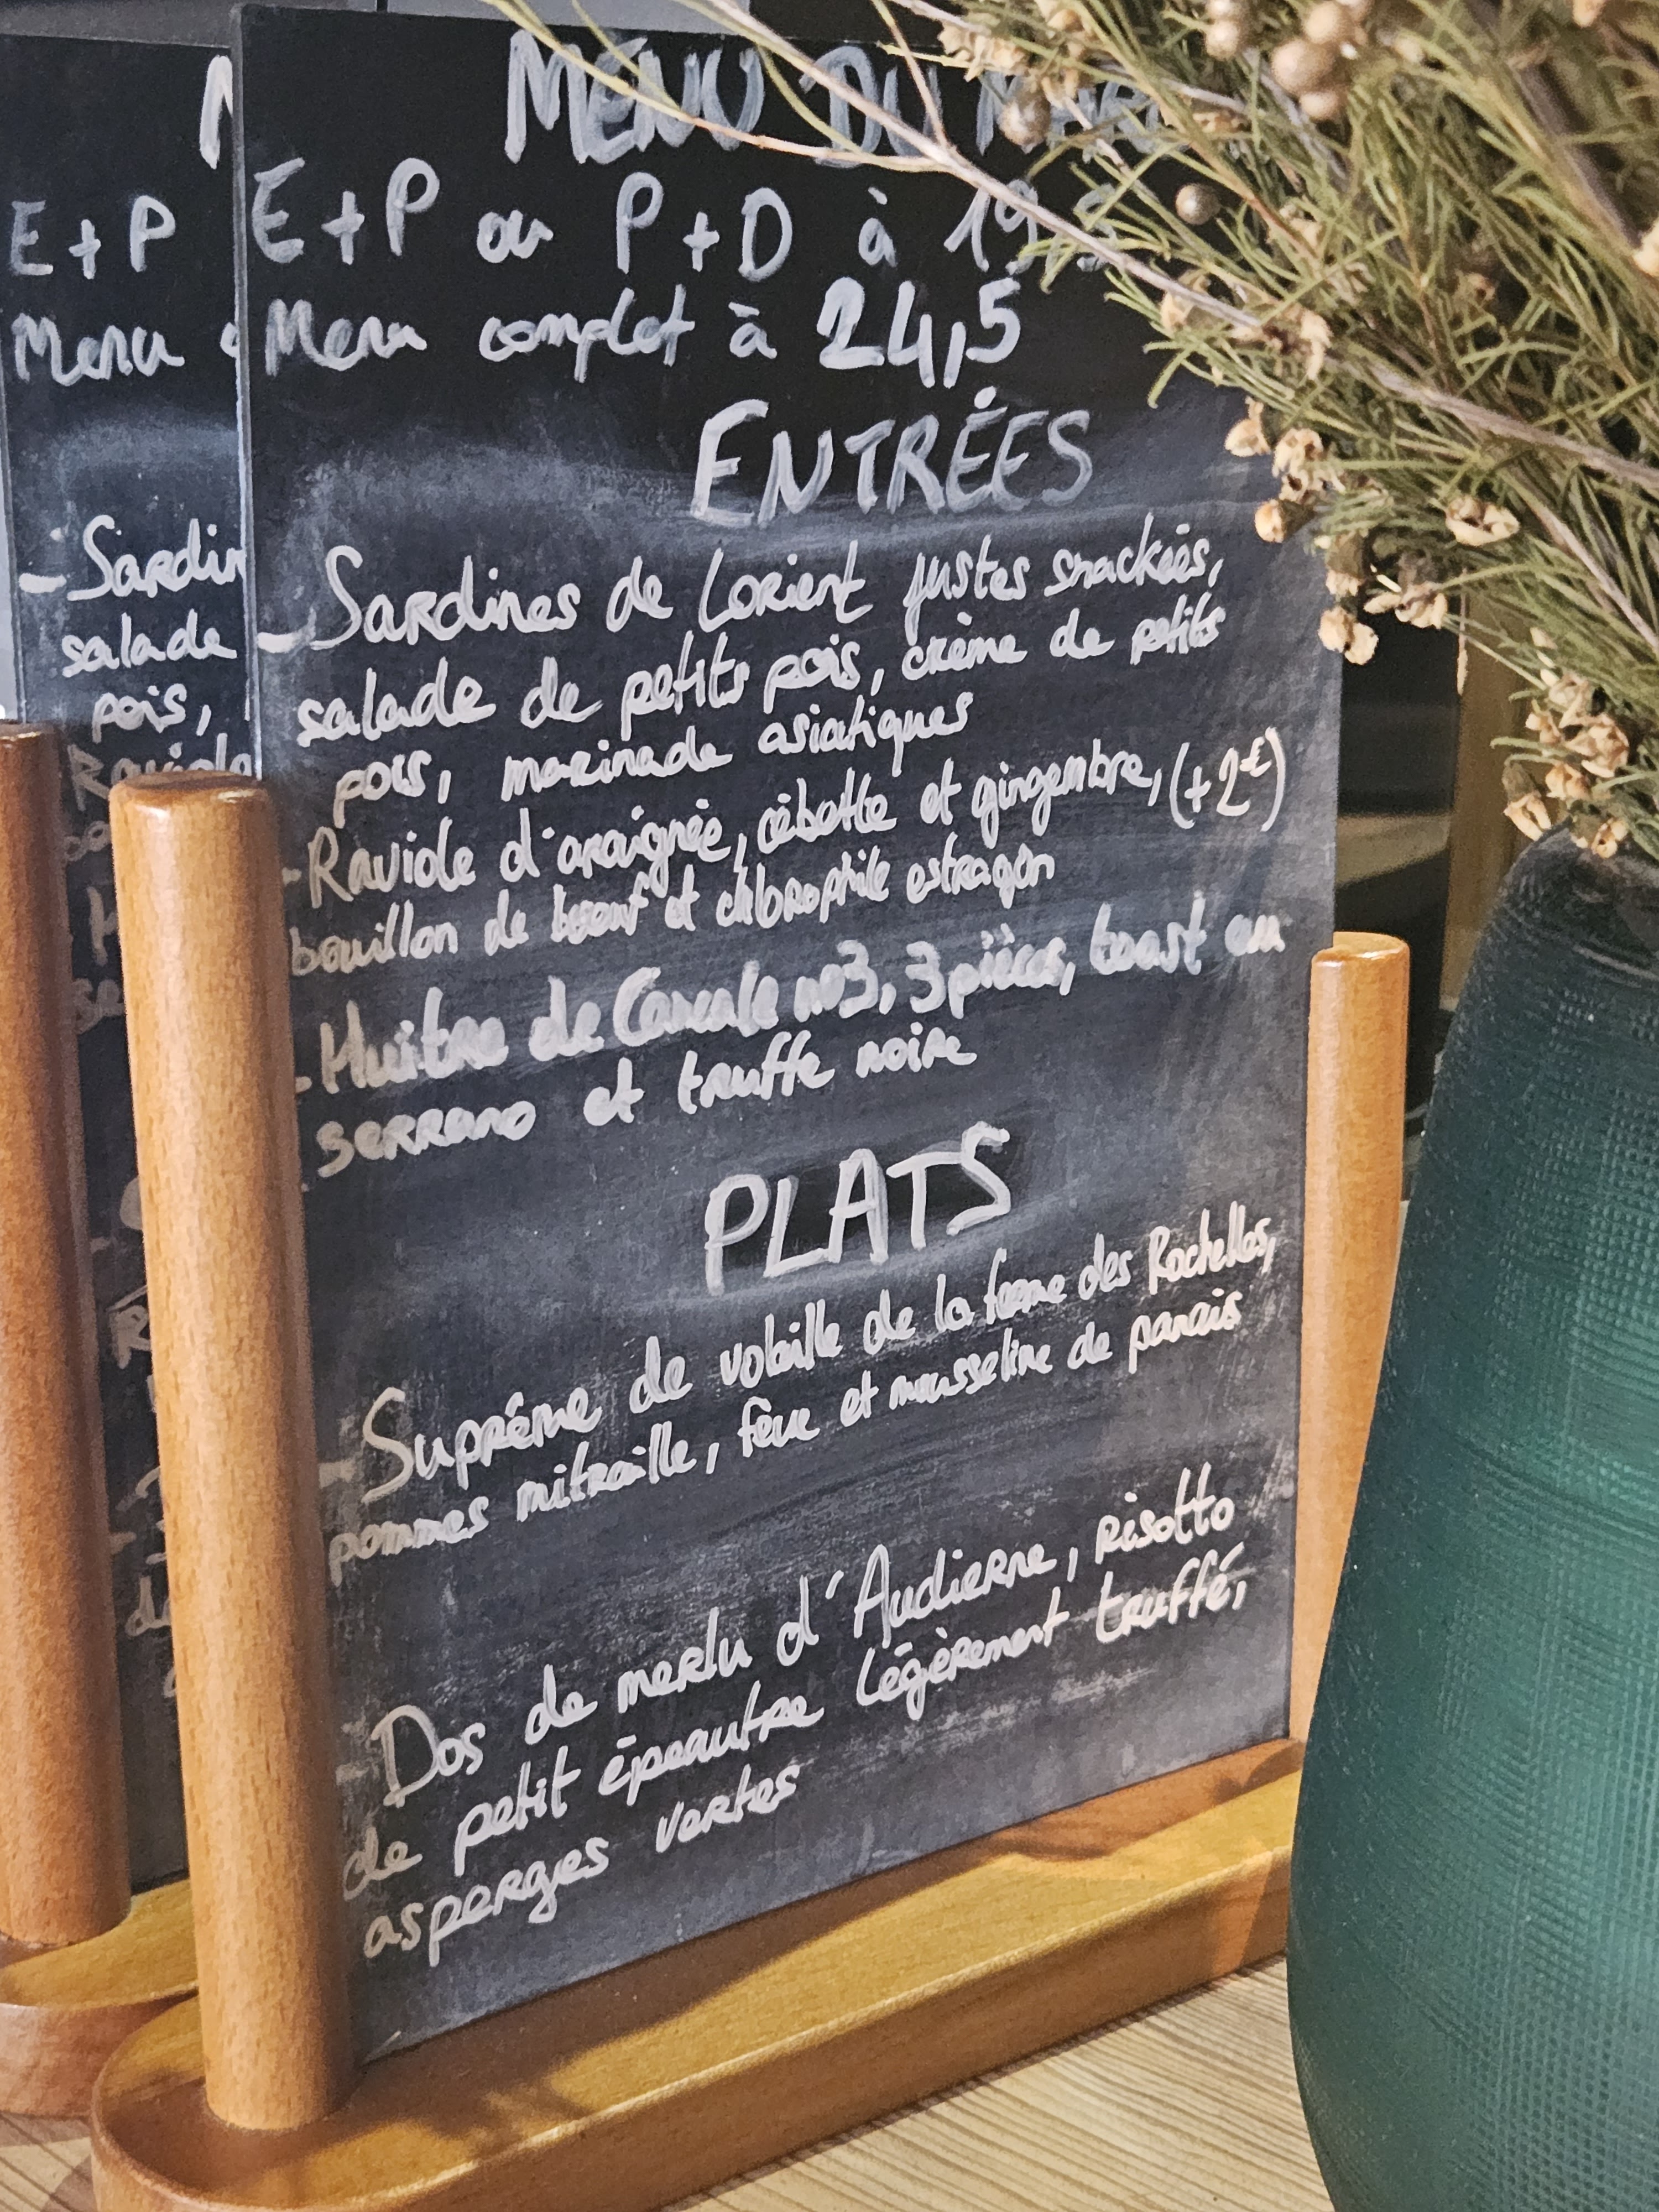 MENU DU MAR
E+P ou P+D à 19,5
Menu complet à 24,5
ENTRÉES
- Sardines de Lorient justes snackées,
salade de petits pois, crème de petits
pois, marinade asiatiques
- Raviole d'araignée, cébette et gingembre, (+2€)
bouillon de boeuf et chlorophile estragon
- Huitre de Cancale no3, 3 pièces, toast au
serrano et truffe noire
PLATS
- Suprême de volaille de la ferme des Rochelles,
pommes mitraille, fève et mousseline de panais
- Dos de merlu d'Audierne, risotto
de petit épeautre légèrement truffé,
asperges vertes
E+P
Menu
- Sardin
salade
pois,